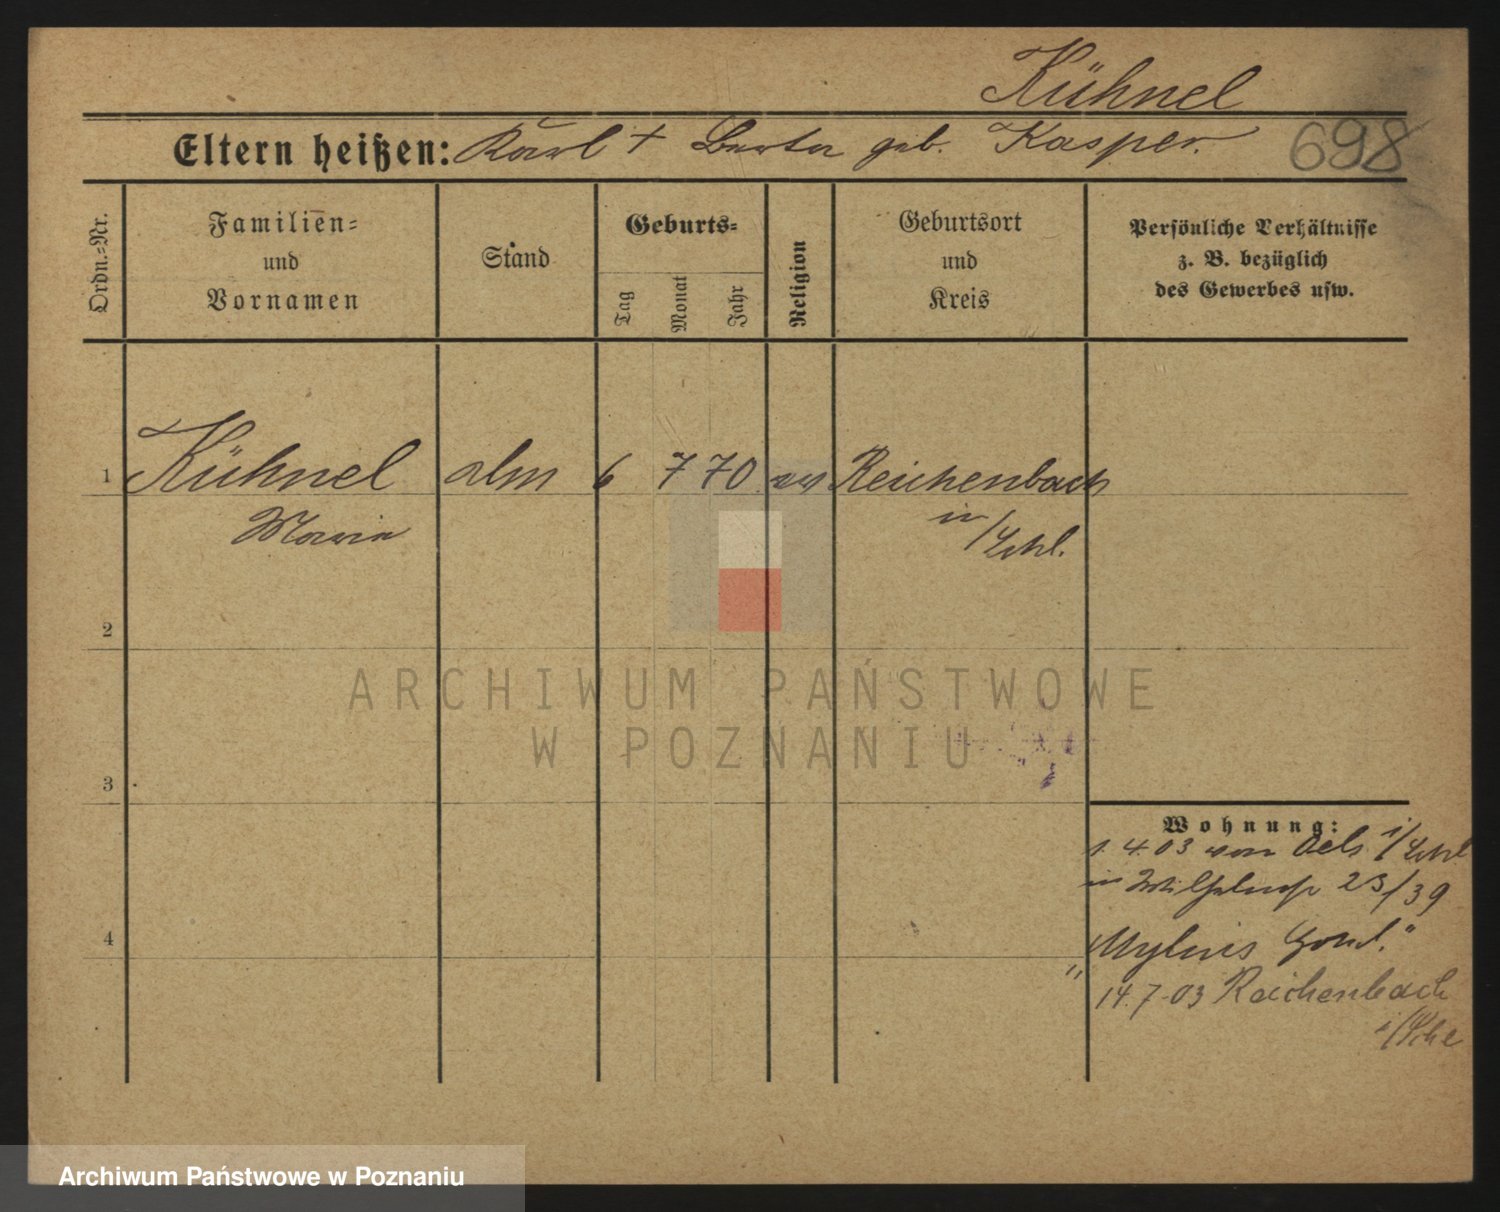 Kühnel
Eltern heißen: Karl † Berta geb. Kasper.
698
Ordn.-Nr.
Familien-
und
Vornamen
Stand
Geburts-
Tag
Monat
Jahr
Religion
Geburtsort
und
Kreis
Persönliche Verhältnisse
z. B. bezüglich
des Gewerbes usw.
1 Kühnel 6 7 70 ev Reichenbach
Marie in/Schl.
2
3
4
Wohnung:
1. 4. 03 von Oels i/Schl
in Wilhelmstr 23/39
14. 7. 03 Reichenbach
i/Schl
ARCHIWUM PAŃSTWOWE
W POZNANIU
Archiwum Państwowe w Poznaniu